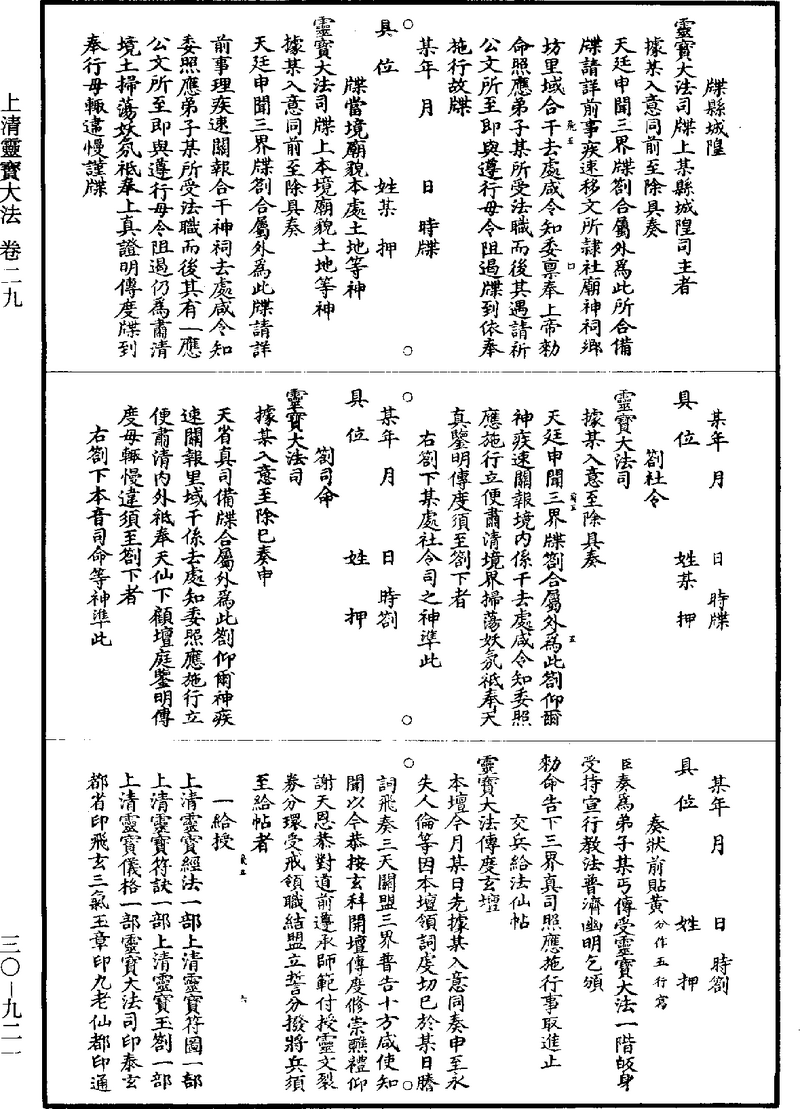 牒縣城隍
靈寶大法司牒上某縣城隍司主者
據某入意同前至除具奏
天廷申聞三界牒劄合屬外為此所合備
牒請詳前事疾速移文所隸社廟神祠鄉
坊里域合干去處咸令知委稟奉上帝勑
命照應弟子某所受法職而後其遇請祈
公文所至即與遵行毋令阻遏牒到依奉
施行故牒
某年 月 日 時牒
具位 姓某 押
牒當境廟貌本處土地等神
靈寶大法司牒上本境廟貌土地等神
據某入意同前至除具奏
天廷申聞三界牒劄合屬外為此牒請詳
前事理疾速關報合干神祠去處咸令知
委照應弟子某所受法職而後其有一應
公文所至即與遵行毋令阻遏仍為肅清
境土掃蕩妖氛祇奉上真證明傳度牒到
奉行毋輒違慢謹牒
某年 月 日 時牒
具位 姓某 押
劄社令
靈寶大法司
據某入意至除具奏
天廷申聞三界牒劄合屬外為此劄仰爾
神疾速關報境內係干去處咸令知委照
應施行立便肅清境界掃蕩妖氛祇奉天
真鑒明傳度須至劄下者
右劄下某處社令司之神準此
某年 月 日 時劄
具位 姓 押
劄司命
靈寶大法司
據某入意至除已奏申
天省真司備牒合屬外為此劄仰爾神疾
速關報里域干係去處知委照應施行立
便肅清內外祇奉天仙下顧壇庭鑒明傳
度毋輒慢違須至劄下者
右劄下本音司命等神準此
某年 月 日 時劄
具位 姓 押
奏狀前貼黃 分作五行寫
臣奏為弟子某丐傳受靈寶大法一階皈身
受持宣行教法普濟幽明乞頒
勑命告下三界真司照應施行事取進止
交兵給法仙帖
靈寶大法傳度玄壇
本壇今月某日先據某入意同奏申至永
失人倫等因本壇領詞虔切已於某日謄
詞飛奏三天關盟三界普告十方咸使知
聞以今恭按玄科開壇傳度修崇醮禮仰
謝天恩恭對道前遵承師範付授靈文裂
券分環受戒領職結盟立誓分撥將兵須
至給帖者
一給授
上清靈寶經法一部上清靈寶符圖一部
上清靈寶符訣一部上清靈寶玉劄一部
上清靈寶儀格一部靈寶大法司印泰玄
都省印飛玄三氣玉章印九老仙都印通
上清靈寶大法 卷二九
三〇—九二一